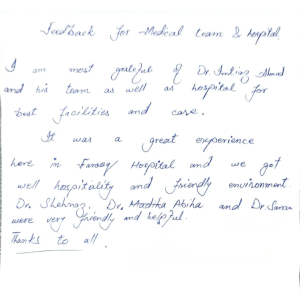 Feedback for Medical team & hospital
I am most grateful of Dr. Imtiaz Ahmad
and his team as well as hospital for
best facilities and care.
It was a great experience
here in Farooq Hospital and we got
well hospitality and friendly environment.
Dr. Shehnaz, Dr. Madiha Abiha and Dr
were very friendly and helpful.
Thanks to all.